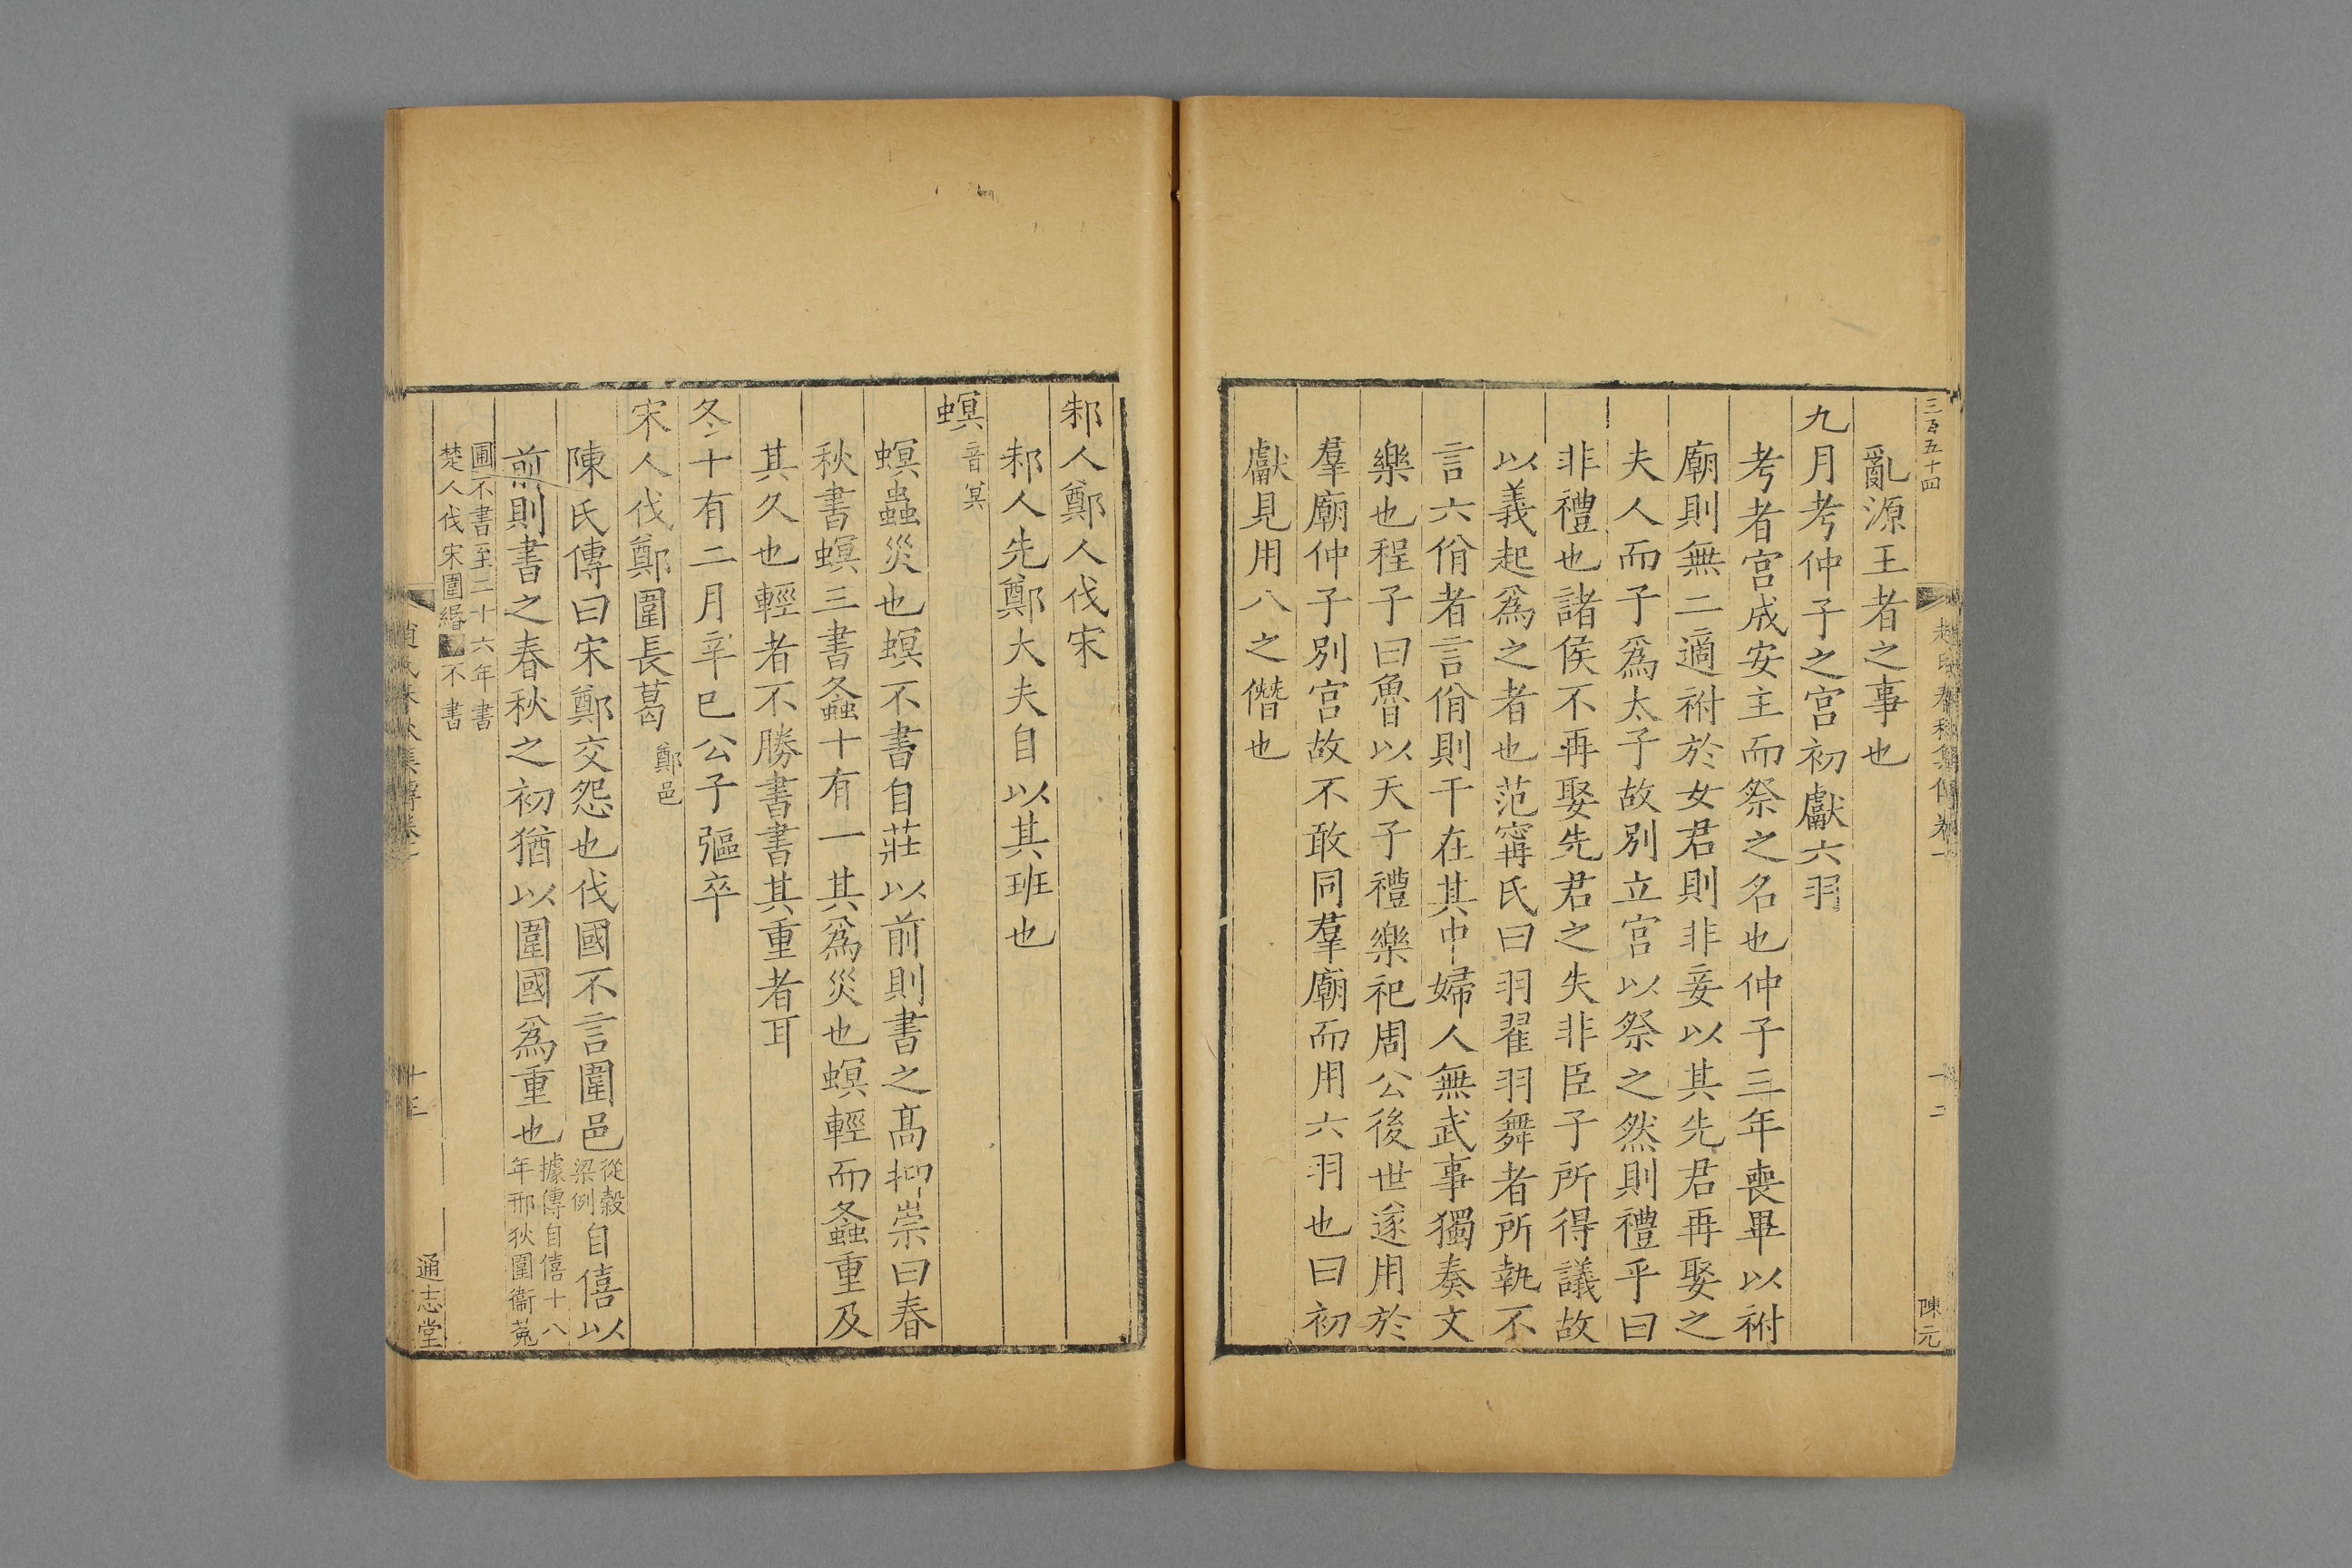 三百五十四
趙氏春秋集傳卷一
十二
陳元
亂源王者之事也
九月考仲子之宮初獻六羽
考者宮成安主而祭之名也仲子三年喪畢以祔
廟則無二適祔於女君則非妾以其先君再娶之
夫人而子爲太子故別立宮以祭之然則禮乎曰
非禮也諸侯不再娶先君之失非臣子所得議故
以義起爲之者也范甯氏曰羽翟羽舞者所執不
言六佾者言佾則干在其中婦人無武事獨奏文
樂也程子曰魯以天子禮樂祀周公後世遂用於
羣廟仲子別宮故不敢同羣廟而用六羽也曰初
獻見用八之僭也
邾人鄭人伐宋
邾人先鄭大夫自以其班也
螟音冥
螟蟲災也螟不書自莊以前則書之高抑崇曰春
秋書螟三書螽十有一其爲災也螟輕而螽重及
其久也輕者不勝書書其重者耳
冬十有二月辛巳公子彄卒
宋人伐鄭圍長葛鄭邑
陳氏傳曰宋鄭交怨也伐國不言圍邑從穀梁例自僖以
前則書之春秋之初猶以圍國爲重也據傳自僖十八年邢狄圍衞菟
圃不書至二十六年書楚人伐宋圍緡不書
趙氏春秋集傳卷一
十三
通志堂